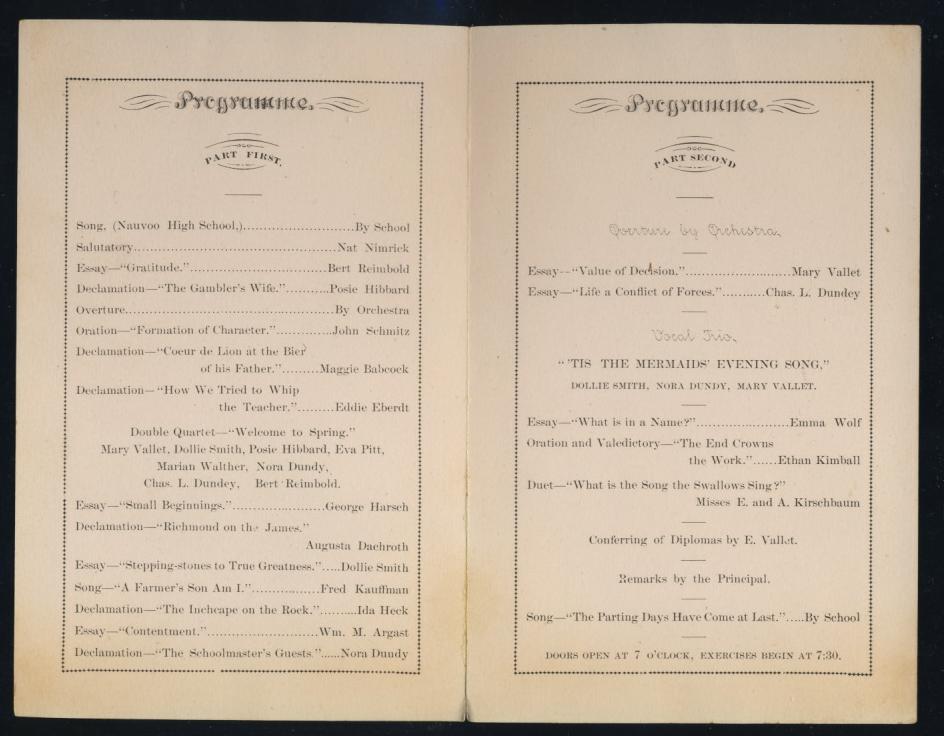 Programme.
PART FIRST.
Song, (Nauvoo High School,)..........................By School
Salutatory...............................................Nat Nimrick
Essay—“Gratitude.”................................Bert Reimbold
Declamation—“The Gambler's Wife.”..........Posie Hibbard
Overture.................................................By Orchestra
Oration—“Formation of Character.”.............John Schmitz
Declamation—“Coeur de Lion at the Bier
of his Father.”.........Maggie Babcock
Declamation—“How We Tried to Whip
the Teacher.”.........Eddie Eberdt
Double Quartet—“Welcome to Spring.”
Mary Vallet, Dollie Smith, Posie Hibbard, Eva Pitt,
Marian Walther, Nora Dundy,
Chas. L. Dundey, Bert Reimbold.
Essay—“Small Beginnings.”.......................George Harsch
Declamation—“Richmond on the James.”
Augusta Dachroth
Essay—“Stepping-stones to True Greatness.”.....Dollie Smith
Song—“A Farmer's Son Am I.”.................Fred Kauffman
Declamation—“The Inchcape on the Rock.”.........Ida Heck
Essay—“Contentment.”...........................Wm. M. Argast
Declamation—“The Schoolmaster's Guests.”.....Nora Dundy
Programme.
PART SECOND
Overture by Orchestra.
Essay—“Value of Decision.”..........................Mary Vallet
Essay—“Life a Conflict of Forces.”..........Chas. L. Dundey
Vocal Trio.
“ 'TIS THE MERMAIDS' EVENING SONG,”
DOLLIE SMITH, NORA DUNDY, MARY VALLET.
Essay—“What is in a Name?”.......................Emma Wolf
Oration and Valedictory—“The End Crowns
the Work.”......Ethan Kimball
Duet—“What is the Song the Swallows Sing?”
Misses E. and A. Kirschbaum
Conferring of Diplomas by E. Vallet.
Remarks by the Principal.
Song—“The Parting Days Have Come at Last.”.....By School
DOORS OPEN AT 7 O'CLOCK, EXERCISES BEGIN AT 7:30.